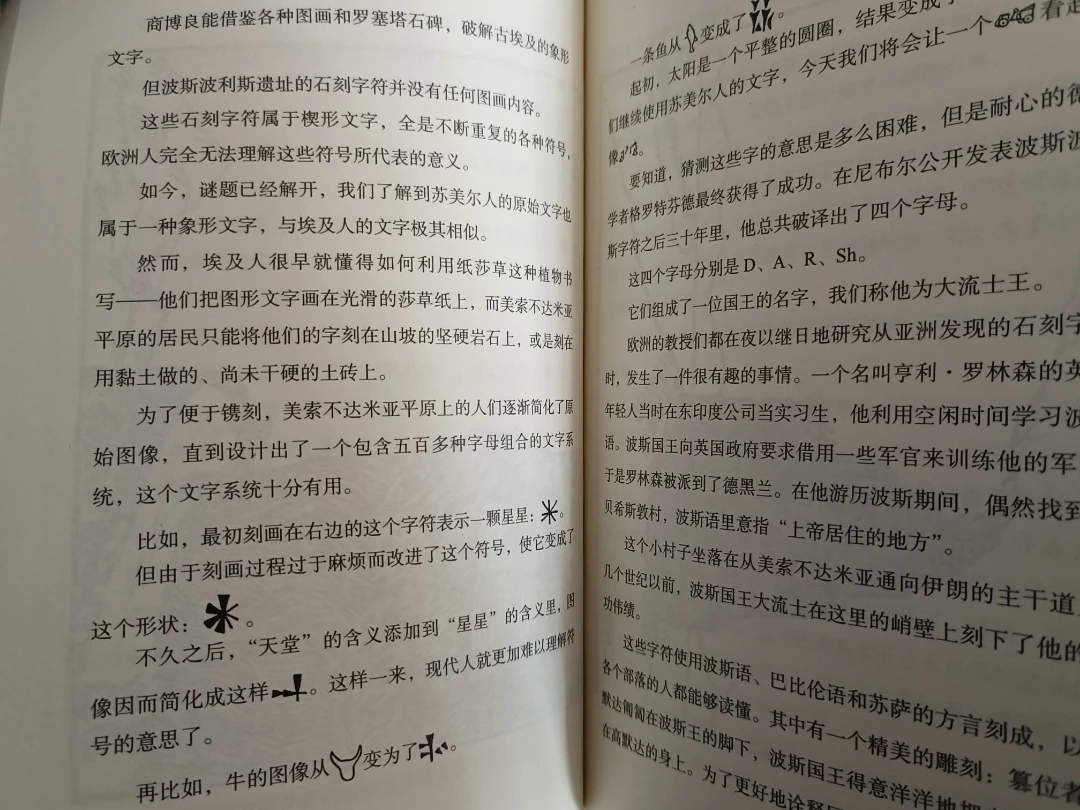 商博良能借鉴各种图画和罗塞塔石碑，破解古埃及的象形
文字。
但波斯波利斯遗址的石刻字符并没有任何图画内容。
这些石刻字符属于楔形文字，全是不断重复的各种符号，
欧洲人完全无法理解这些符号所代表的意义。
如今，谜题已经解开，我们了解到苏美尔人的原始文字也
属于一种象形文字，与埃及人的文字极其相似。
然而，埃及人很早就懂得如何利用纸莎草这种植物书
写——他们把图形文字画在光滑的莎草纸上，而美索不达米亚
平原的居民只能将他们的字刻在山坡的坚硬岩石上，或是刻在
用黏土做的、尚未干硬的土砖上。
为了便于镌刻，美索不达米亚平原上的人们逐渐简化了原
始图像，直到设计出了一个包含五百多种字母组合的文字系
统，这个文字系统十分有用。
比如，最初刻画在右边的这个字符表示一颗星星：。
但由于刻画过程过于麻烦而改进了这个符号，使它变成了
这个形状：。
不久之后，“天堂”的含义添加到“星星”的含义里，图
像因而简化成这样。这样一来，现代人就更加难以理解符
号的意思了。
再比如，牛的图像从变为了。
一条鱼从变成了。
起初，太阳是一个平整的圆圈，结果变成了
们继续使用苏美尔人的文字，今天我们将会让一个看起
像。
要知道，猜测这些字的意思是多么困难，但是耐心的德
学者格罗特芬德最终获得了成功。在尼布尔公开发表波斯波
斯字符之后三十年里，他总共破译出了四个字母。
这四个字母分别是 D、A、R、Sh。
它们组成了一位国王的名字，我们称他为大流士王。
欧洲的教授们都在夜以继日地研究从亚洲发现的石刻字
时，发生了一件很有趣的事情。一个名叫亨利·罗林森的英
年轻人当时在东印度公司当实习生，他利用空闲时间学习波
语。波斯国王向英国政府要求借用一些军官来训练他的军
于是罗林森被派到了德黑兰。在他游历波斯期间，偶然找到
贝希斯敦村，波斯语里意指“上帝居住的地方”。
这个小村子坐落在从美索不达米亚通向伊朗的主干道
几个世纪以前，波斯国王大流士在这里的峭壁上刻下了他的
功伟绩。
这些字符使用波斯语、巴比伦语和苏萨的方言刻成，以
各个部落的人都能够读懂。其中有一个精美的雕刻：篡位者
默达匍匐在波斯王的脚下，波斯国王得意洋洋地把
在高默达的身上。为了更好地诠释